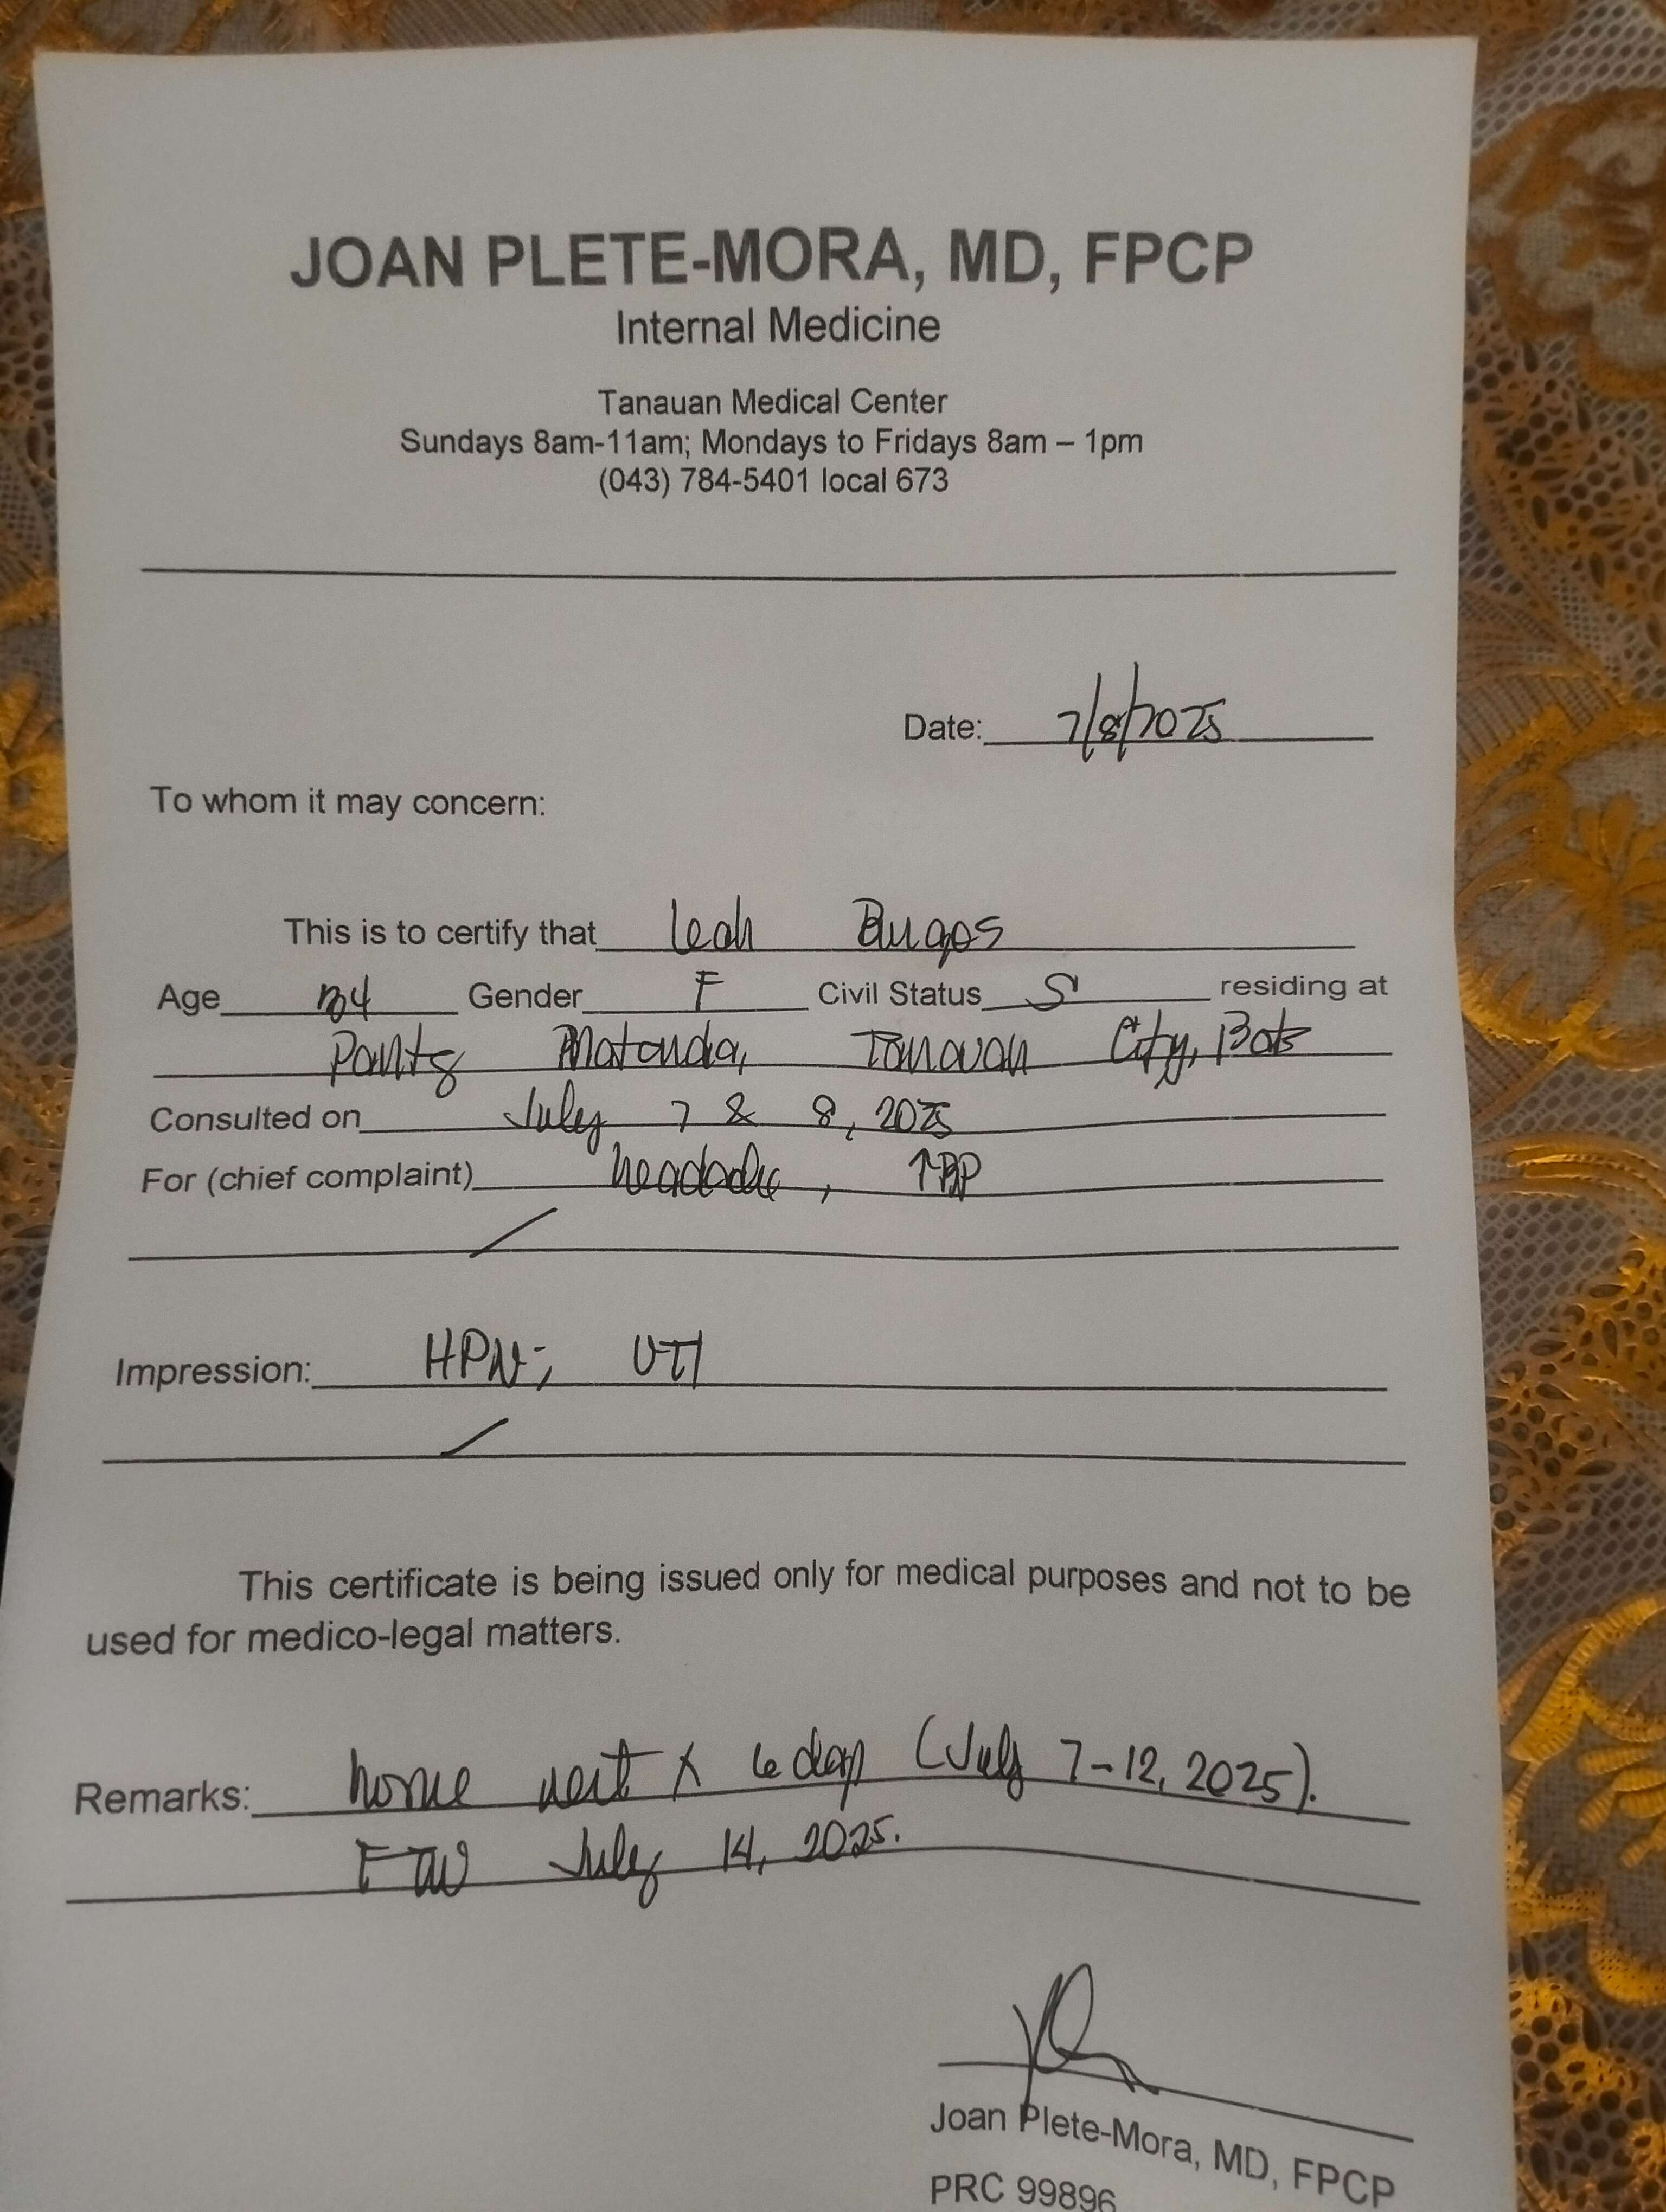 JOAN PLETE-MORA, MD, FPCP
Internal Medicine
Tanauan Medical Center
Sundays 8am-11am; Mondays to Fridays 8am – 1pm
(043) 784-5401 local 673
Date: 7/8/2025
To whom it may concern:
This is to certify that Leah Burgos
Age Gender F Civil Status S residing at
Tanauan City, Bats
Consulted on July 7 & 8, 2025
For (chief complaint) headache, ↑BP
Impression: HPN; UTI
This certificate is being issued only for medical purposes and not to be
used for medico-legal matters.
Remarks: home rest x 6 days (July 7-12, 2025).
FTW July 14, 2025.
Joan Plete-Mora, MD, FPCP
PRC 99896